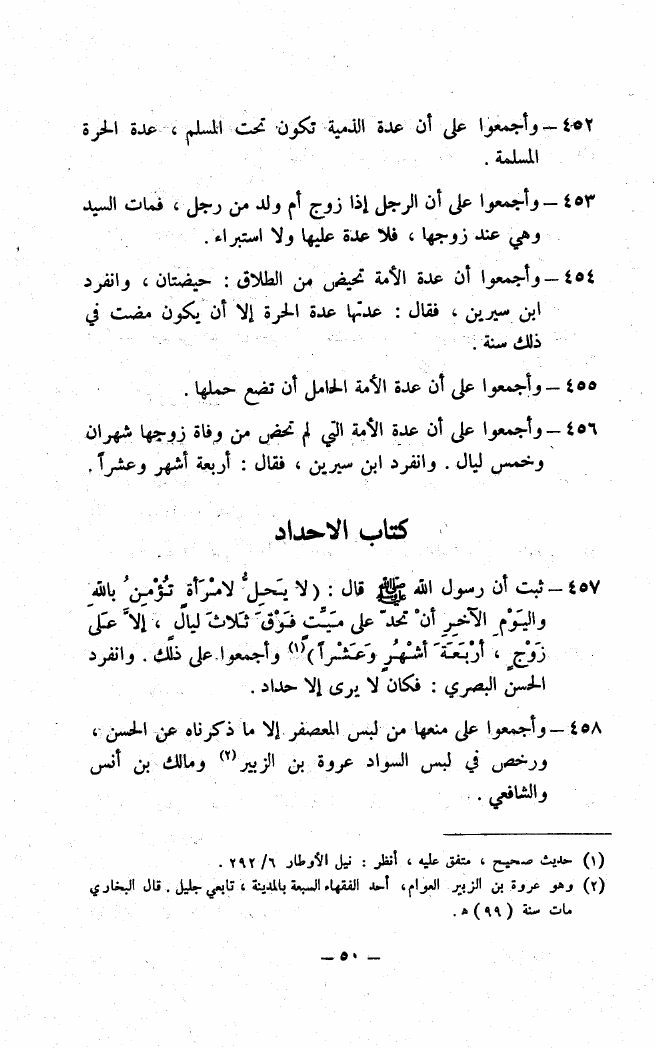 ٤٥٢ – وأجمعوا على أن عدة الذمية تكون تحت المسلم ، عدة الحرة
المسلمة .
٤٥٣ – وأجمعوا على أن الرجل إذا زوج أم ولد من رجل ، فمات السيد
وهي عند زوجها ، فلا عدة عليها ولا استبراء .
٤٥٤ – وأجمعوا أن عدة الأمة تحيض من الطلاق : حيضتان ، وانفرد
ابن سيرين ، فقال : عدتها عدة الحرة إلا أن يكون مضت في
ذلك سنة .
٤٥٥ – وأجمعوا على أن عدة الأمة الحامل أن تضع حملها .
٤٥٦ – وأجمعوا على أن عدة الأمة التي لم تحض من وفاة زوجها شهران
وخمس ليال . وانفرد ابن سيرين ، فقال : أربعة أشهر وعشراً .
كتاب الاحداد
٤٥٧ – ثبت أن رسول الله ﷺ قال : (لا يَحِلُّ لامْرَأةٍ تُؤْمِنُ بالله
واليَوْمِ الآخِرِ أنْ تحدَّ على مَيِّتٍ فَوْقَ ثَلاثَ لَيالٍ ، إلاَّ عَلى
زَوْجٍ ، أرْبَعَةَ أشْهُرٍ وَعَشْراً)(١) وأجمعوا على ذلك . وانفرد
الحسن البصري : فكان لا يرى إلا حداد .
٤٥٨ – وأجمعوا على منعها من لبس المعصفر إلا ما ذكرناه عن الحسن ،
ورخص في لبس السواد عروة بن الزبير(٢) ومالك بن أنس
والشافعي .
(١) حديث صحيح ، متفق عليه ، أنظر : نيل الأوطار ٦/ ٢٩٢ .
(٢) وهو عروة بن الزبير العوام، أحد الفقهاء السبعة بالمدينة ، تابعي جليل . قال البخاري
مات سنة (٩٩) ه .
– ٥٠ –